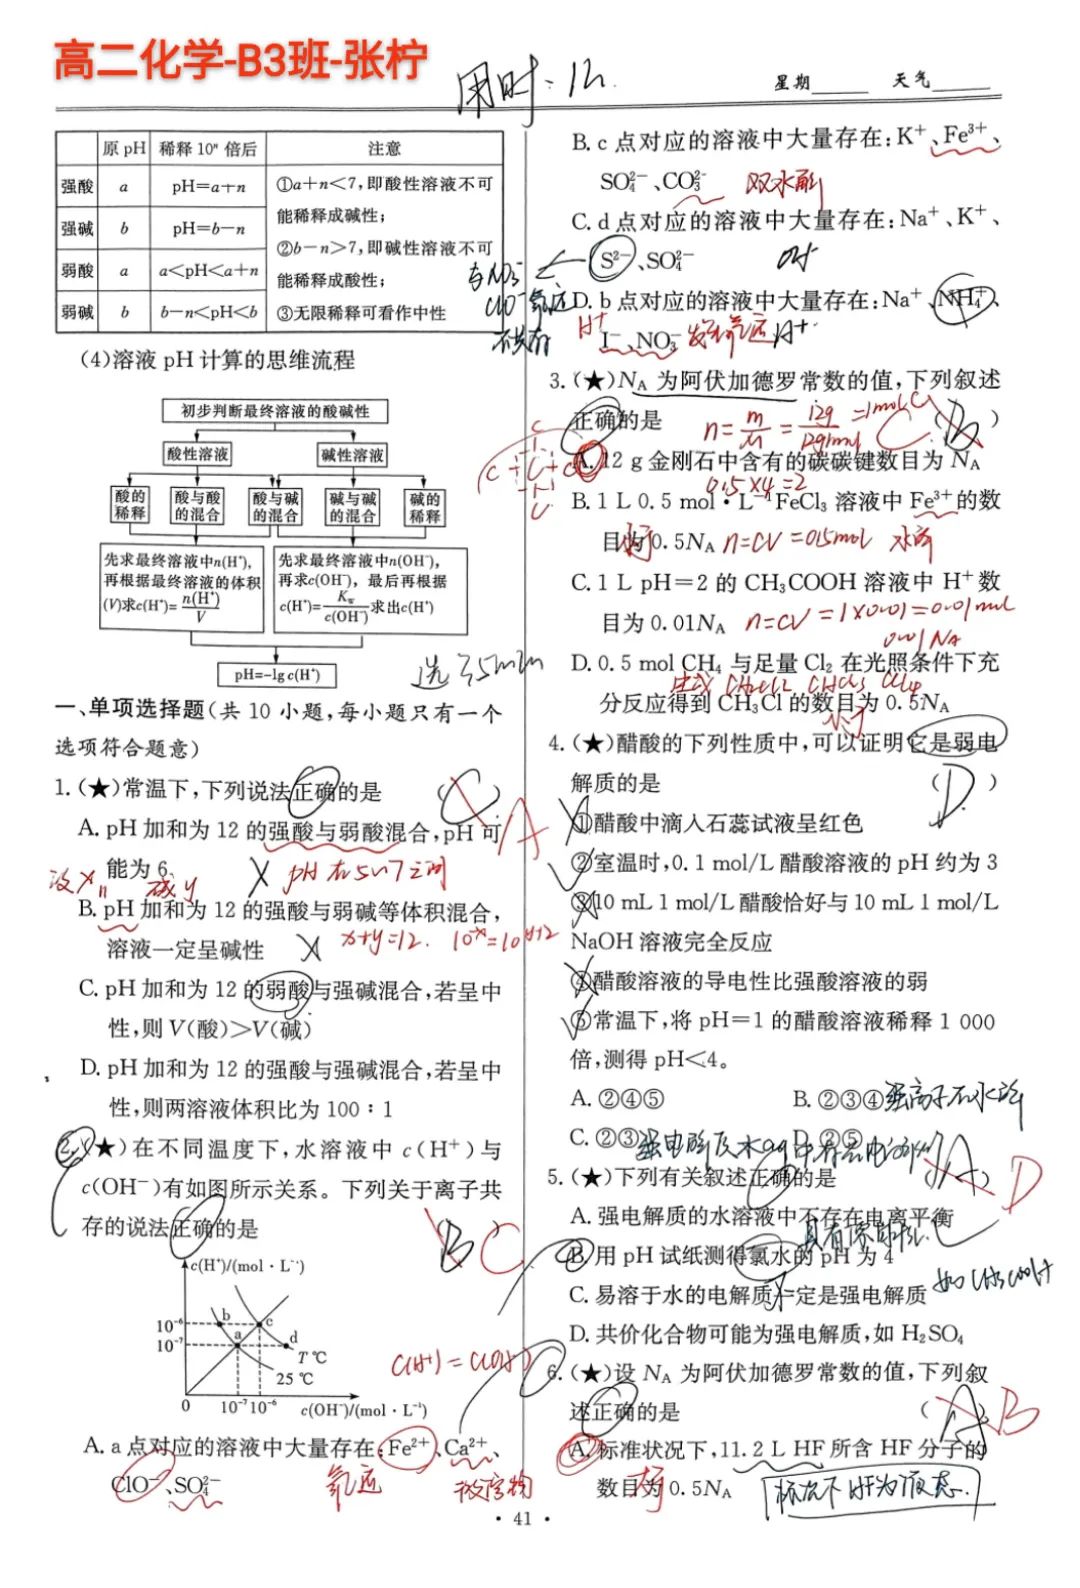 高二化学-B3班-张柠
用时：1h.
星期______ 天气______
原pH 稀释10ⁿ倍后 注意
强酸 a pH=a+n ①a+n<7,即酸性溶液不可
能稀释成碱性;
强碱 b pH=b-n
②b-n>7,即碱性溶液不可
弱酸 a a<pH<a+n
能稀释成酸性;
弱碱 b b-n<pH<b ③无限稀释可看作中性
(4)溶液pH计算的思维流程
初步判断最终溶液的酸碱性
酸性溶液 碱性溶液
酸的稀释 酸与酸的混合 酸与碱的混合 碱与碱的混合 碱的稀释
先求最终溶液中n(H⁺),
再根据最终溶液的体积
(V)求c(H⁺)=n(H⁺)/V
先求最终溶液中n(OH⁻),
再求c(OH⁻),最后再根据
c(H⁺)=Kw/c(OH⁻)求出c(H⁺)
pH=-lg c(H⁺)
选 35min
一、单项选择题(共10小题,每小题只有一个
选项符合题意)
1.(★)常温下,下列说法正确的是 (C) A
A. pH加和为12的强酸与弱酸混合,pH可
能为6 X pH在5~7之间
设x 碱y
B. pH加和为12的强酸与弱碱等体积混合,
溶液一定呈碱性 X x+y=12. 10⁻ˣ=10ʸ⁻¹²
C. pH加和为12的弱酸与强碱混合,若呈中
性,则V(酸)>V(碱)
D. pH加和为12的强酸与强碱混合,若呈中
性,则两溶液体积比为100:1
2.(★)在不同温度下,水溶液中c(H⁺)与
c(OH⁻)有如图所示关系。下列关于离子共
存的说法正确的是 (B) C
c(H⁺)/(mol·L⁻¹)
b
10⁻⁶ c
a d
10⁻⁷
T℃
25℃
0 10⁻⁷ 10⁻⁶ c(OH⁻)/(mol·L⁻¹)
c(H⁺)=c(OH⁻)
A. a点对应的溶液中大量存在:Fe²⁺、Ca²⁺、
ClO⁻、SO₄²⁻ 氧还 微溶物
B. c点对应的溶液中大量存在:K⁺、Fe³⁺、
SO₄²⁻、CO₃²⁻ 双水解
C. d点对应的溶液中大量存在:Na⁺、K⁺、
S²⁻、SO₄²⁻ OH⁻
与NO₃⁻
ClO⁻氧还
不共存
D. b点对应的溶液中大量存在:Na⁺、NH₄⁺、
I⁻、NO₃⁻ H⁺ 发生氧还 H⁺
3.(★)NA为阿伏加德罗常数的值,下列叙述
正确的是 (B) C
n=m/M=12g/12g/mol=1mol C
A. 12 g金刚石中含有的碳碳键数目为NA
0.5×4=2
B. 1 L 0.5 mol·L⁻¹ FeCl₃溶液中Fe³⁺的数
目为0.5NA n=CV=0.5mol 水解
小于
C. 1 L pH=2的CH₃COOH溶液中H⁺数
目为0.01NA n=CV=1×0.01=0.01mol
0.01NA
D. 0.5 mol CH₄与足量Cl₂在光照条件下充
生成 CH₂Cl₂ CHCl₃ CCl₄
分反应得到CH₃Cl的数目为0.5NA
小于
4.(★)醋酸的下列性质中,可以证明它是弱电
解质的是 (D)
①醋酸中滴入石蕊试液呈红色
②室温时,0.1 mol/L醋酸溶液的pH约为3
③10 mL 1 mol/L醋酸恰好与10 mL 1 mol/L
NaOH溶液完全反应
④醋酸溶液的导电性比强酸溶液的弱
⑤常温下,将pH=1的醋酸溶液稀释1 000
倍,测得pH<4。
A. ②④⑤ B. ②③④
C. ②③ D. ②⑤
5.(★)下列有关叙述正确的是 (A) D
A. 强电解质的水溶液中不存在电离平衡
B. 用pH试纸测得氯水的pH为4
C. 易溶于水的电解质一定是强电解质 如CH₃COOH
D. 共价化合物可能为强电解质,如H₂SO₄
6.(★)设NA为阿伏加德罗常数的值,下列叙
述正确的是 (A) B
A. 标准状况下,11.2 L HF所含HF分子的
数目为0.5NA 大于 标况下HF为液态.
· 41 ·